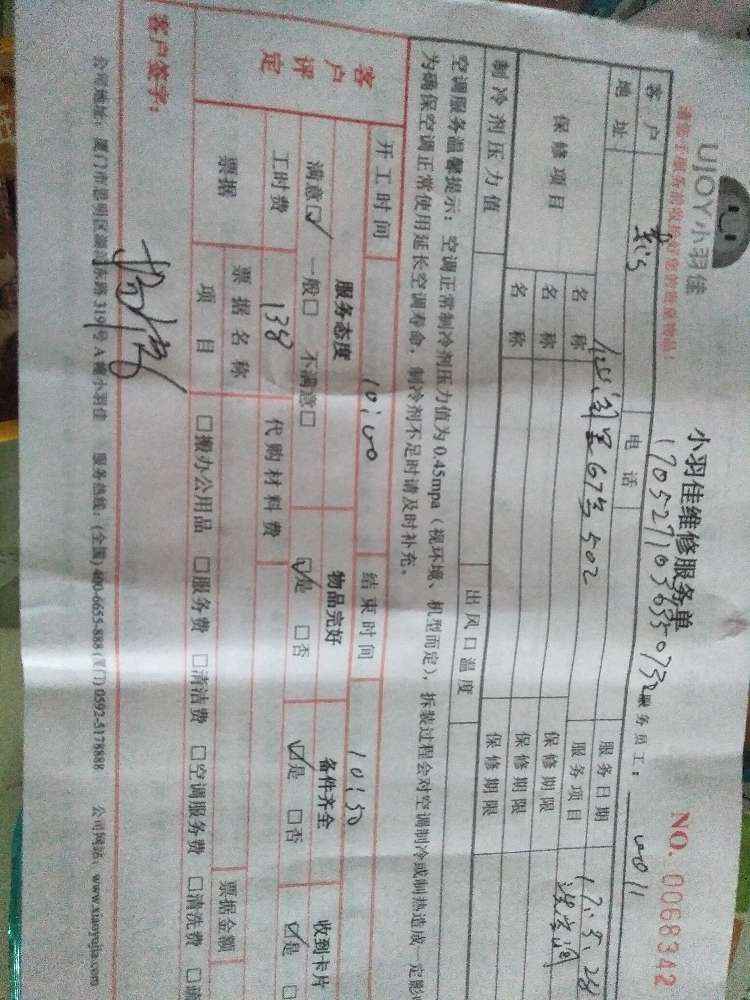 UJOY小羽佳
请您于服务前收拾好您的贵重物品！
小羽佳维修服务单
NO. 0068342
170527103655-0730
服务员工： 0011
客户
电话
服务日期 17.5.28
地址 67号502
服务项目 洗空调
保修项目
名称
保修期限
名称
保修期限
名称
保修期限
制冷剂压力值
出风口温度
空调服务温馨提示：空调正常制冷剂压力值为0.45mpa（视环境、机型而定），拆装过程会对空调制冷或制热造成一定影
为确保空调正常使用延长空调寿命，制冷剂不足时请及时补充。
开工时间 10:00
结束时间 10:50
客户评定
服务态度
物品完好
备件齐全
收到卡片
满意☑ 一般□ 不满意□
☑是 □否
☑是 □否
☑是 □
工时费 138
代购材料费
票据
票据名称
票据金额
项目
□搬办公用品 □服务费 □清洁费 □空调服务费 □清洗费
客户签字：
公司地址：厦门市思明区湖滨东路319号A幢小羽佳 服务热线：(全国) 400-6655-888 (厦门) 0592-5178888 公司网站：www.xiaoyujia.com